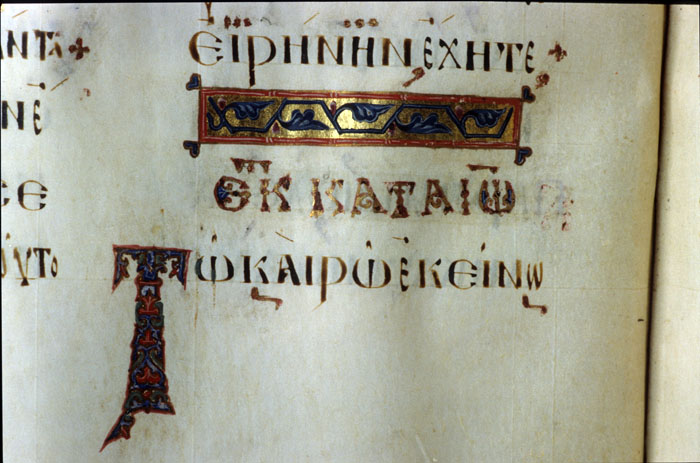 ΑΝΤΑ+
ΝΕ
ϹΕ
ΟΥΤΟ
ΕΙΡΗΝΗΝ ΕΧΗΤΕ+
ΕΚ ΚΑΤΑ ΙΩ
ΤΩ ΚΑΙΡΩ ΕΚΕΙΝΩ